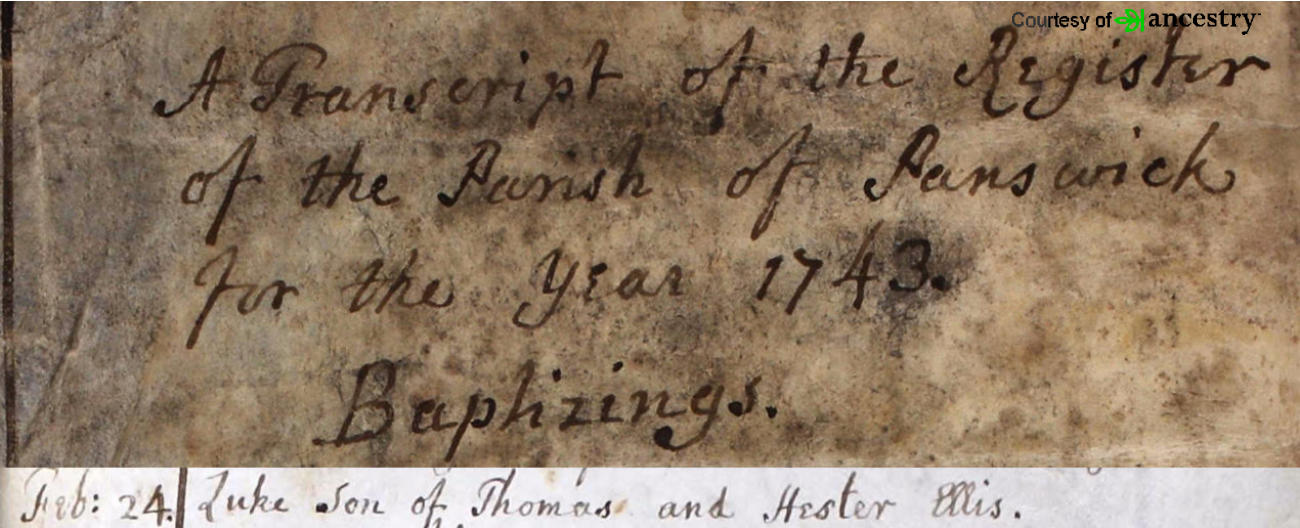 Courtesy of ancestry
A Transcript of the Register
of the Parish of Panswick
for the Year 1743.
Baptizings.
Feb: 24. Luke Son of Thomas and Hester Ellis.